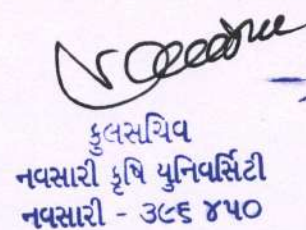 કુલસચિવ
નવસારી કૃષિ યુનિવર્સિટી
નવસારી - ૩૯૬ ૪૫૦